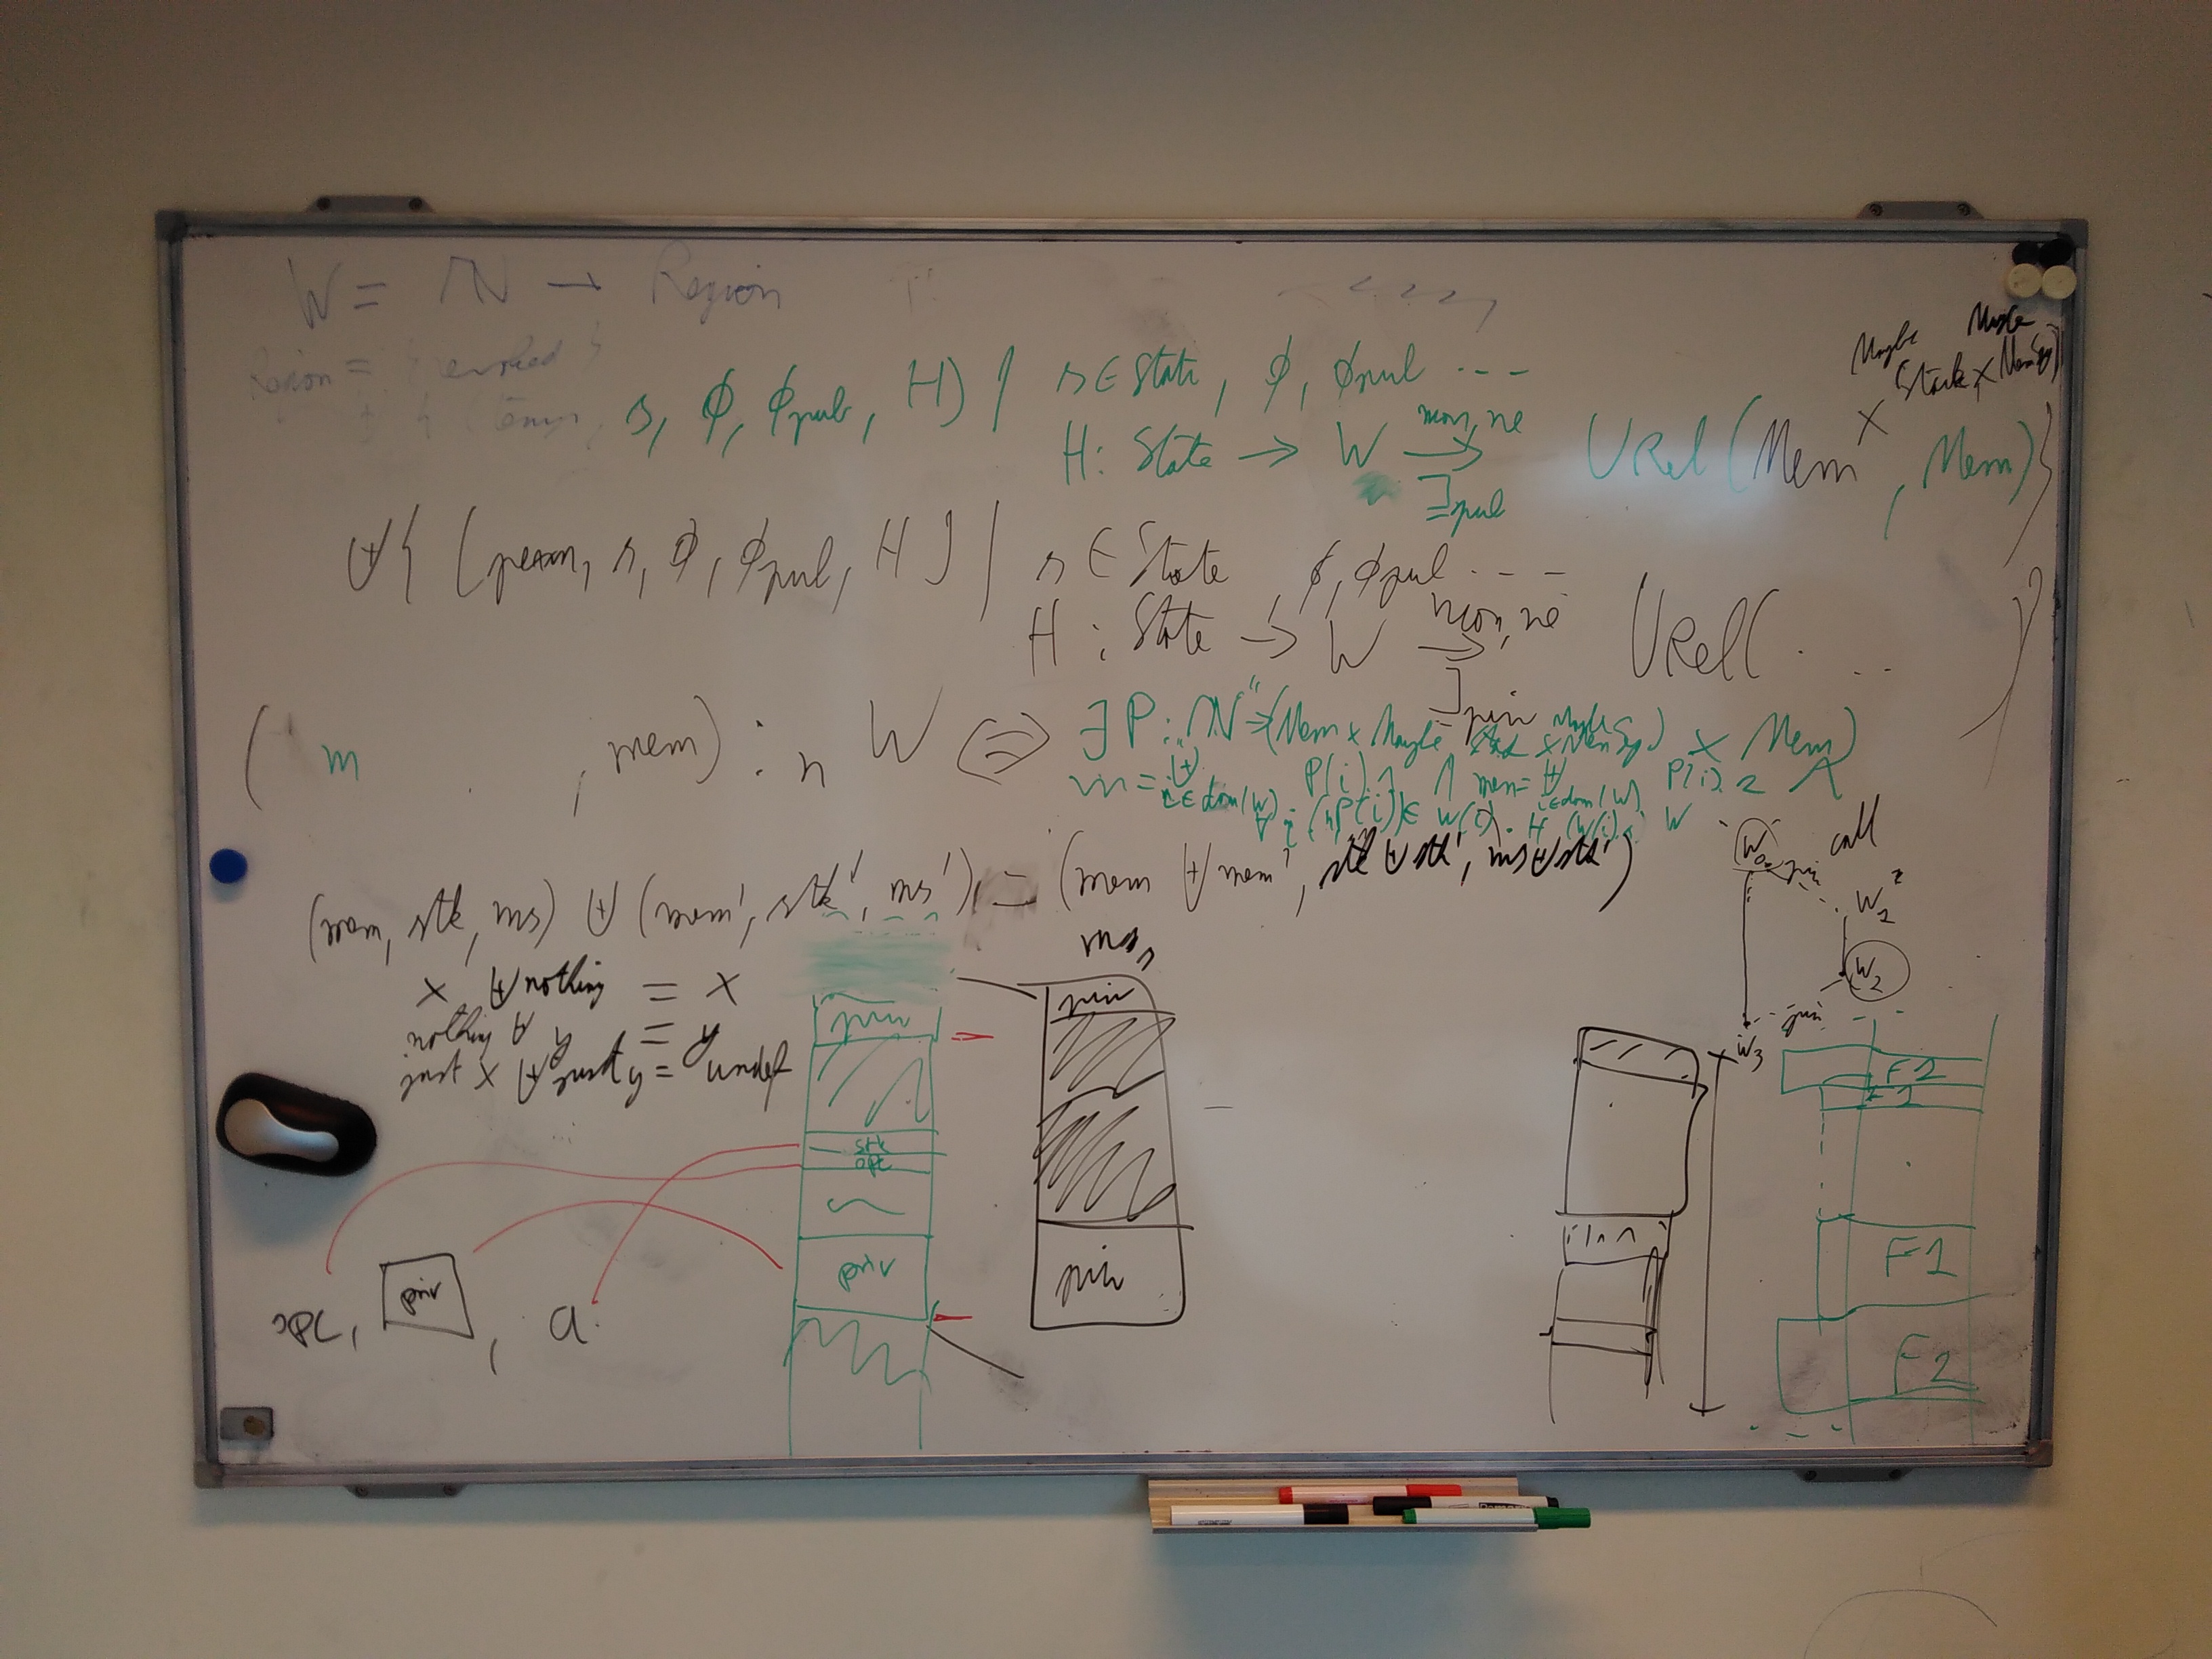 W = ℕ → Region
Region = { revoked }
⊎ { (temp, s, ϕ, ϕpub, H) | s ∈ State, ϕ, ϕpub ---
H: State → W mon, ne → ⊒pub URel (Mem × Maybe Stack × Maybe , Mem) }
⊎ { (perm, s, ϕ, ϕpub, H) | s ∈ State ϕ, ϕpub ---
H : State → W mon, ne → ⊒priv URel( . . . . }
( m , mem) :n W ⟺ ∃ P : ℕ → (Mem × Maybe × ) × Mem)
m = ⊎ i ∈ dom(W) P(i).1 ∧ mem = ⊎ i∈dom(W) P(i).2 ∧
∀ i. (n, P(i)) ∈ W(i). H (W(i). W
(mem, stk, ms) ⊎ (mem', stk', ms') = (mem ⊎ mem', stk ⊎ stk', ms ⊎ stk')
x ⊎ nothing = x
nothing ⊎ y = y
just x ⊎ just y = undef
priv
stk
opc
priv
opc, priv, a
priv
priv
call
W2
W2
priv
W3
F2
F1
F1
F2